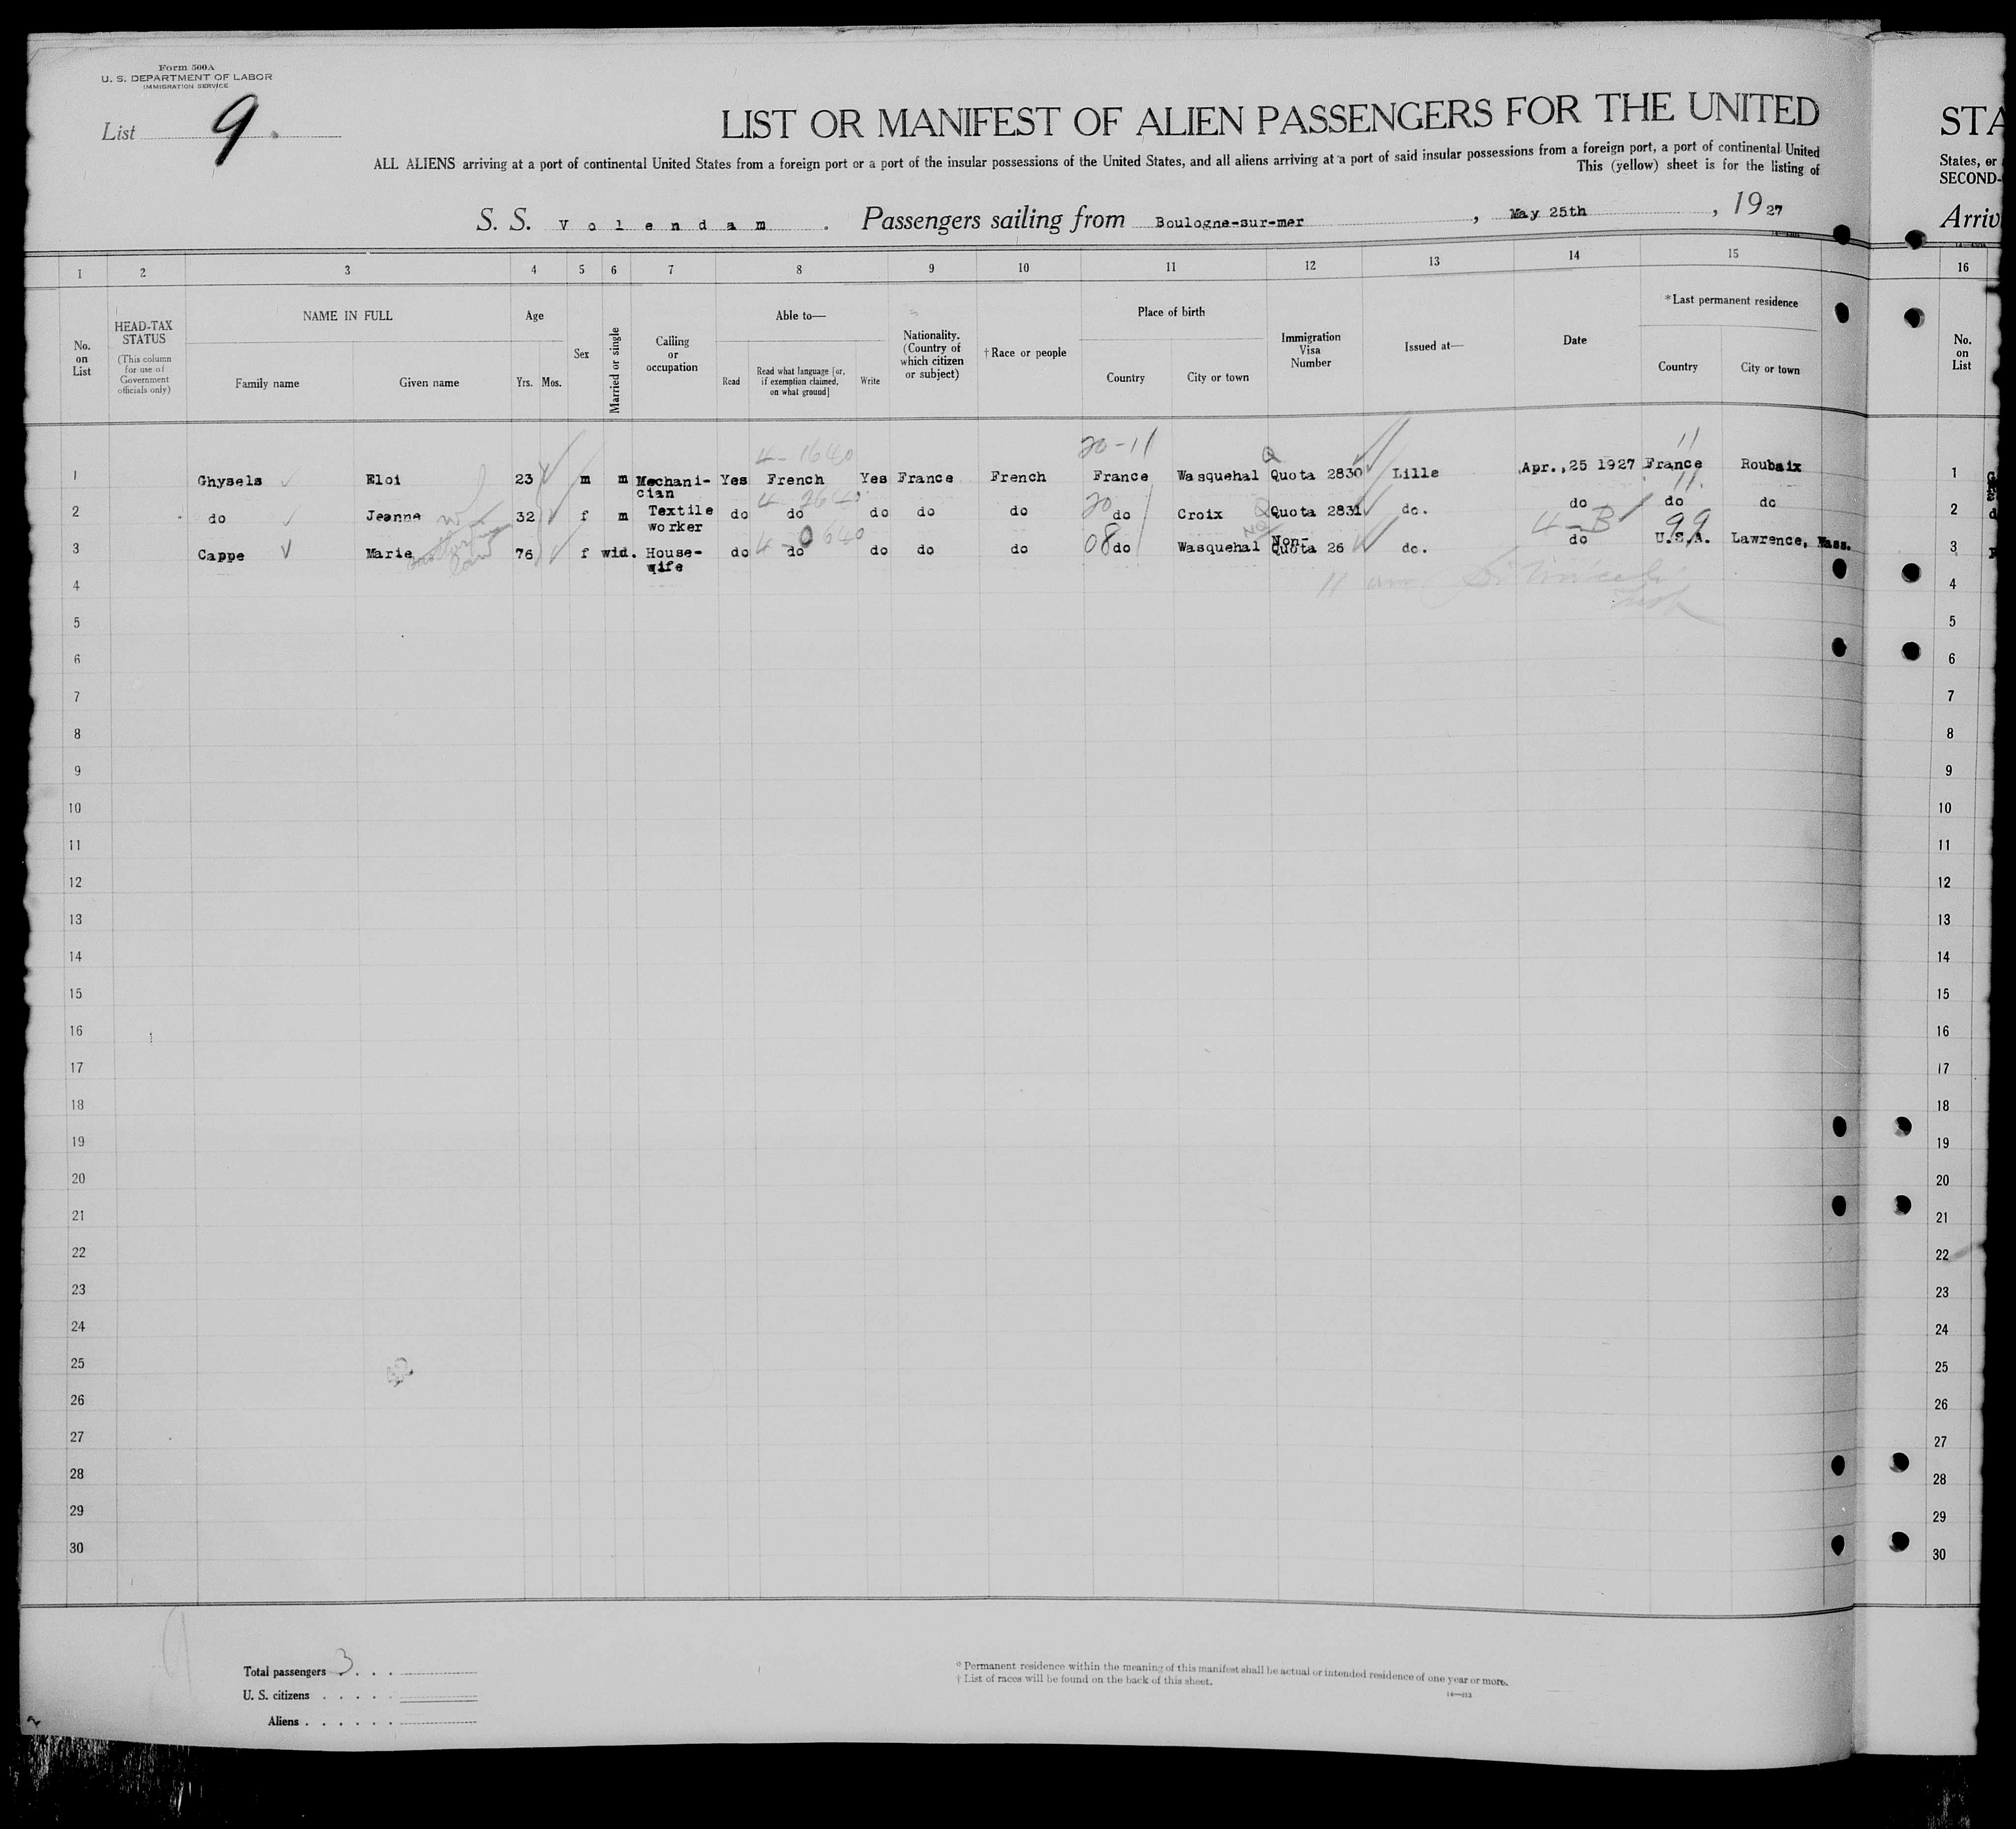 Form 500A
U. S. DEPARTMENT OF LABOR
IMMIGRATION SERVICE
List 9
LIST OR MANIFEST OF ALIEN PASSENGERS FOR THE UNITED
ALL ALIENS arriving at a port of continental United States from a foreign port or a port of the insular possessions of the United States, and all aliens arriving at a port of said insular possessions from a foreign port, a port of continental United
This (yellow) sheet is for the listing of
S. S. Volendam. Passengers sailing from Boulogne-sur-mer, May 25th, 1927
STA
States, or
SECOND-
Arriv
1 2 3 4 5 6 7 8 9 10 11 12 13 14 15 16
No. on List
HEAD-TAX STATUS
(This column for use of Government officials only)
NAME IN FULL
Family name Given name
Age
Yrs. Mos.
Sex
Married or single
Calling or occupation
Able to—
Read
Read what language [or, if exemption claimed, on what ground]
Write
Nationality. (Country of which citizen or subject)
† Race or people
Place of birth
Country City or town
Immigration Visa Number
Issued at—
Date
*Last permanent residence
Country City or town
No. on List
4-1640 20-11 Q 11
1 Ghysels Eloi 23 m m Mechani-cian Yes French Yes France French France Wasquehal Quota 2830 Lille Apr.,25 1927 France Roubaix 1
4-2640 20 Q 11
2 do Jeanne 32 f m Textile worker do do do do do do Croix Quota 2831 do. do do do 2
4-0640 08 4-B 99
3 Cappe Marie 76 f wid. House-wife do do do do do do Wasquehal Non-Quota 26 do. do U.S.A. Lawrence, Mass. 3
4 4
5 5
6 6
7 7
8 8
9 9
10 10
11 11
12 12
13 13
14 14
15 15
16 16
17 17
18 18
19 19
20 20
21 21
22 22
23 23
24 24
25 25
26 26
27 27
28 28
29 29
30 30
Total passengers 3
U. S. citizens
Aliens
* Permanent residence within the meaning of this manifest shall be actual or intended residence of one year or more.
† List of races will be found on the back of this sheet.